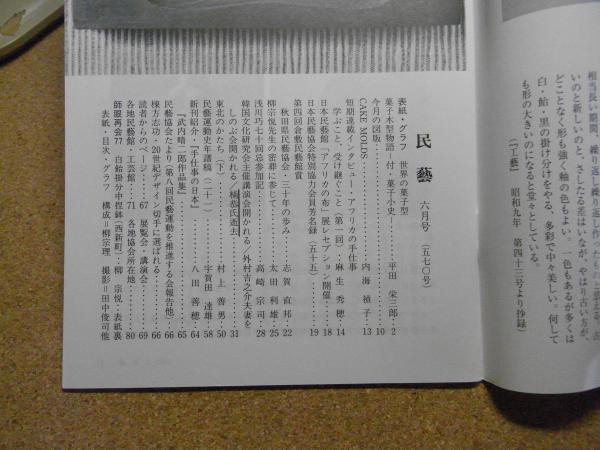 相当長い期間、繰り返し繰り返し作
いのと新しいのと、さしたる差はないが、やはり古い方が、
どことなく形も強く釉の色もよい。一色もあるが多くは
白・飴・黒の掛け分けをやる、多彩で中々美しい。何して
も形の大きいのになると堂々としている。
(『工藝』 昭和九年 第四十三号より抄録)
民藝 六月号 (五七〇号)
表紙・グラフ 世界の菓子型
菓子木型物語―付・菓子小史…平田 栄三郎…2
今月の図版…10
CAKE MOLDS…内海 禎子…13
短期連載インタビュー・アフリカの手仕事
学ぶこと、受け継ぐこと(第一回)…麻生 秀穂…14
日本民藝館「アフリカの布」展レセプション開催…18
日本民藝協会特別協力会員芳名録(五十五)…19
第四回倉敷民藝館賞
秋田県民藝協会・三十年の歩み…志賀 直邦…22
柳宗悦先生の密葬に参じて…太田 利雄…25
浅川巧七十回忌参加記…高崎 宗司…28
韓国文化研究会主催講演会開かれる/外村吉之介夫妻を
しのぶ会開かれる/槇恭氏逝去…31
東北のかたち(下)…村上 善男…50
民藝運動史年譜稿(二十一)…宇賀田 達雄…58
新刊紹介・『手仕事の日本』…八田 善穂…64
『武内晴二郎作品集』…65
民藝協会たより(第八回民藝運動を推進する会報告他)…66
棟方志功・20世紀デザイン切手に選ばれる…66
読者からのページ…67 展覧会・講演会…69
各地民藝館・工芸館…71 各地協会所在地…80
師眼再会77 白飴掛分中捏鉢(西新町)・柳 宗悦・表紙裏
表紙・目次・グラフ 構成=柳宗理 撮影=田中俊司他